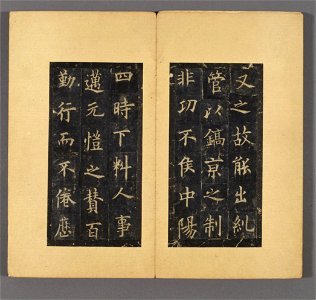 又之故能出糺
管以鎬京之制
非功不侯中陽
四時下料人事
邁元愷之贊百
勤行而不倦